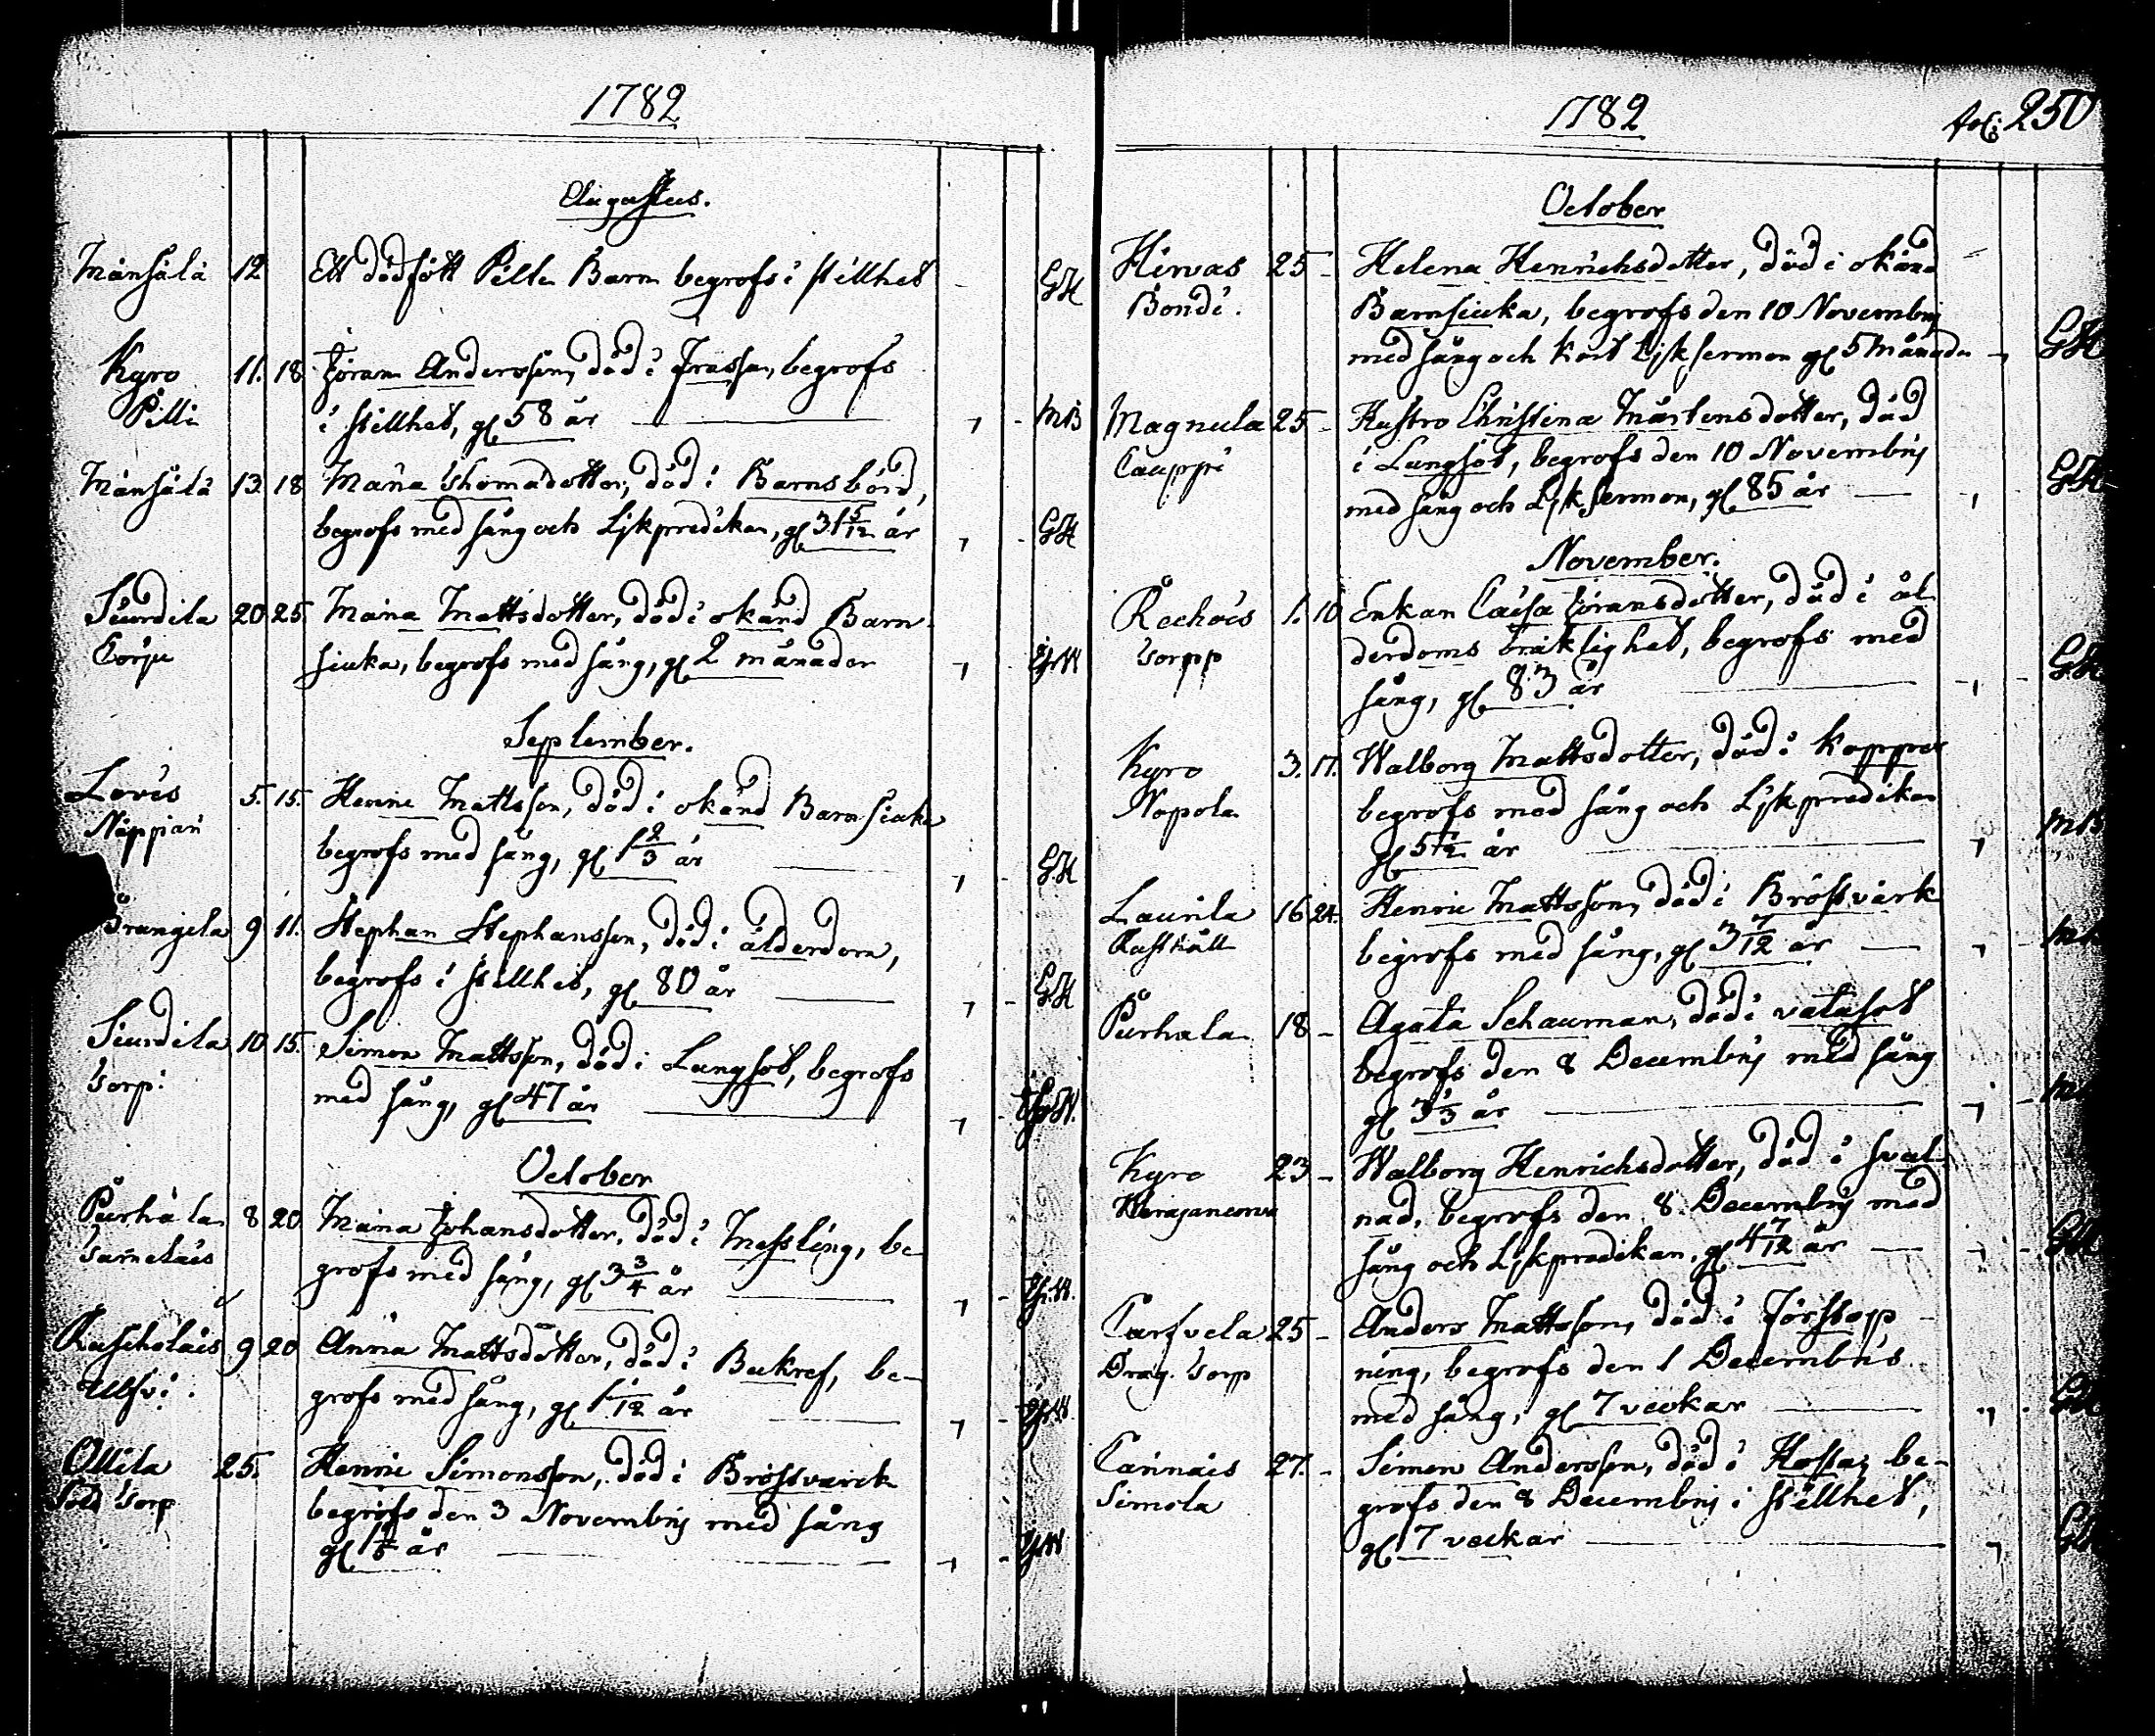 1782
Augustus.
Månsälä 12 Ett dödfött Pilte Barn begrofs i stillhet GH
Kyro 11. 18 Jöran Andersson, död i Frassen, begrofs
Pilli i stillhet, gl 58 år MB
Månsälä 13 18 Maria Thomædotter, död i Barnsbörd,
begrofs med sång och Lijkpredikan, gl 31 5/12 år GH
Siurdila 20 25 Maria Mattsdotter, död i okänd Barn-
siuka, begrofs med sång, gl 2 månader
September.
Lovis 5. 15. Henric Mattsson, död i okänd Barnsiuka
begrofs med sång, gl 1 2/3 år GH
Prangila 9 11. Stephan Stephansson, död i ålderdom,
begrofs i stillhet, gl 80 år GH
Siurdila 10 15. Simon Mattsson, död i Lungsot, begrofs
Torp. med sång, gl 47 år
October
Purhala 8 20 Maria Johansdotter, död i Messling, be-
grofs med sång, gl 3 3/4 år
9 20 Anna Mattsdotter, död i Bukref, be-
grofs med sång, gl 1 1/12 år
Ollila 25. Henric Simonsson, död i Bröstvärck
Sold Torp begrofs den 3 Novembrij med sång
gl 1/5 år
1782 fol: 250
October
Hirvas 25 - Helena Henrichsdotter, död i okänd
Bondi. Barnsiuka, begrofs den 10 Novembrij
med sång och kort Lijksermon gl 5 månader GH
Magnula 25 - Hustro Christina Mårtensdotter, död
Cauppi i Lungsot, begrofs den 10 Novembrij
med sång och Lijksermon, gl 85 år GH
November.
1. 10 Enkan Caisa Jöransdotter, död i ål-
Torpp derdoms bräklighet, begrofs med
sång, gl 83 år GH
Kyro 3. 17. Walborg Mattsdotter, död i koppor
Nopola begrofs med sång och Lijkpredikan
gl 5 1/2 år MB
Laurila 16 24. Henric Mattsson, död i Bröstvärk
begrofs med sång, gl 3 7/12 år
Purhala 18 - Agata Schauman, död i vatusot
begrofs den 8 Decembrij med sång
gl 3 1/3 år
Kyro 23 - Walborg Henrichsdotter, död i sval-
nad, begrofs den 8. Decembrij med
sång och Lijkpredikan, gl 4 7/12 år
Tarfvela 25 - Anders Mattsson, död i Förstopp-
Drag. Torp ning, begrofs den 1 Decembris
med sång, gl 7 veckor
27. - Simon Andersson, död i Hosta, be-
Simola grofs den 8 Decembrij i stillhet,
gl 7 veckor